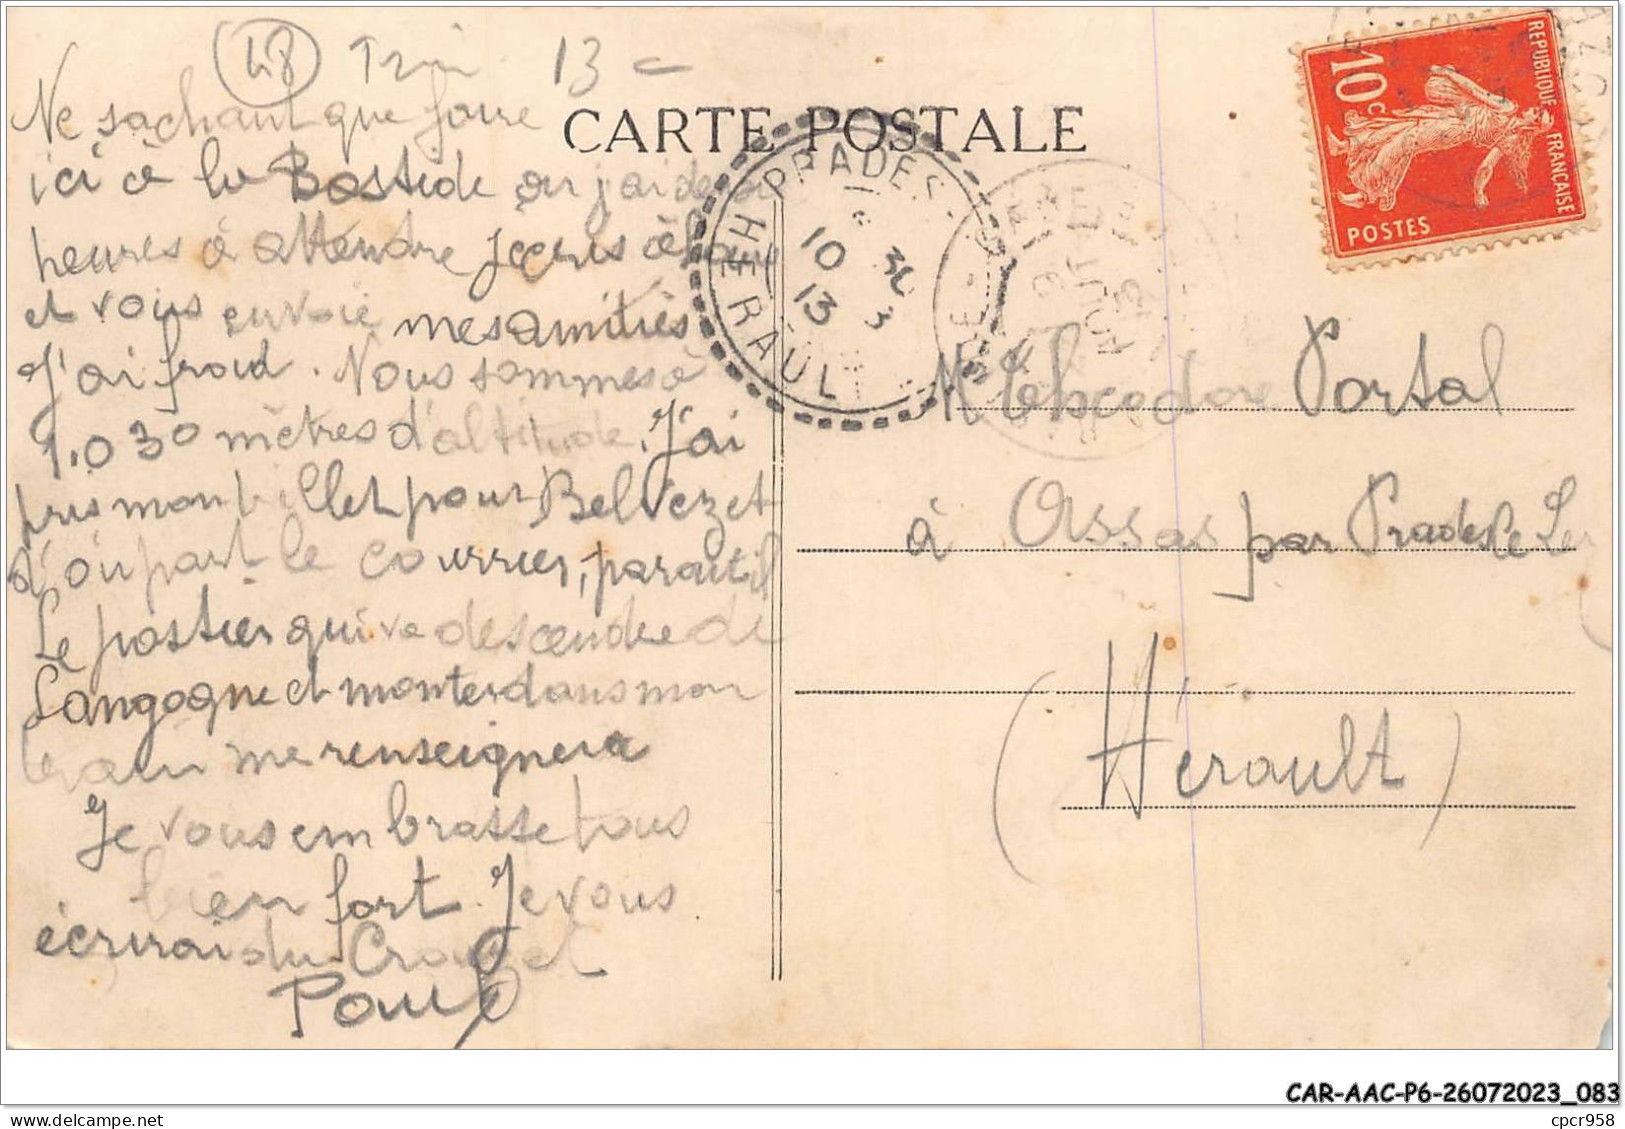 48 13 -
CARTE POSTALE
Ne sachant que faire
ici à la Bastide où j'ai deux
heures à attendre j'écris
et vous envoie mes amitiés
J'ai froid. Nous sommes à
1.030 mètres d'altitude. J'ai
pris mon billet pour Belvezet
d'où part le courrier, paraît il
Le postier qui va descendre de
Langogne et monter dans mon
train me renseignera
Je vous embrasse tous
bien fort. Je vous
écrirai du Crouzet
Paul
PRADES
HÉRAULT
10 30
13 3
REPUBLIQUE FRANÇAISE
10c
POSTES
M Théodore Portal
à Assas par Prades le Lez
(Hérault)
CAR-AAC-P6-26072023_083
delcampe.net
cpcr958